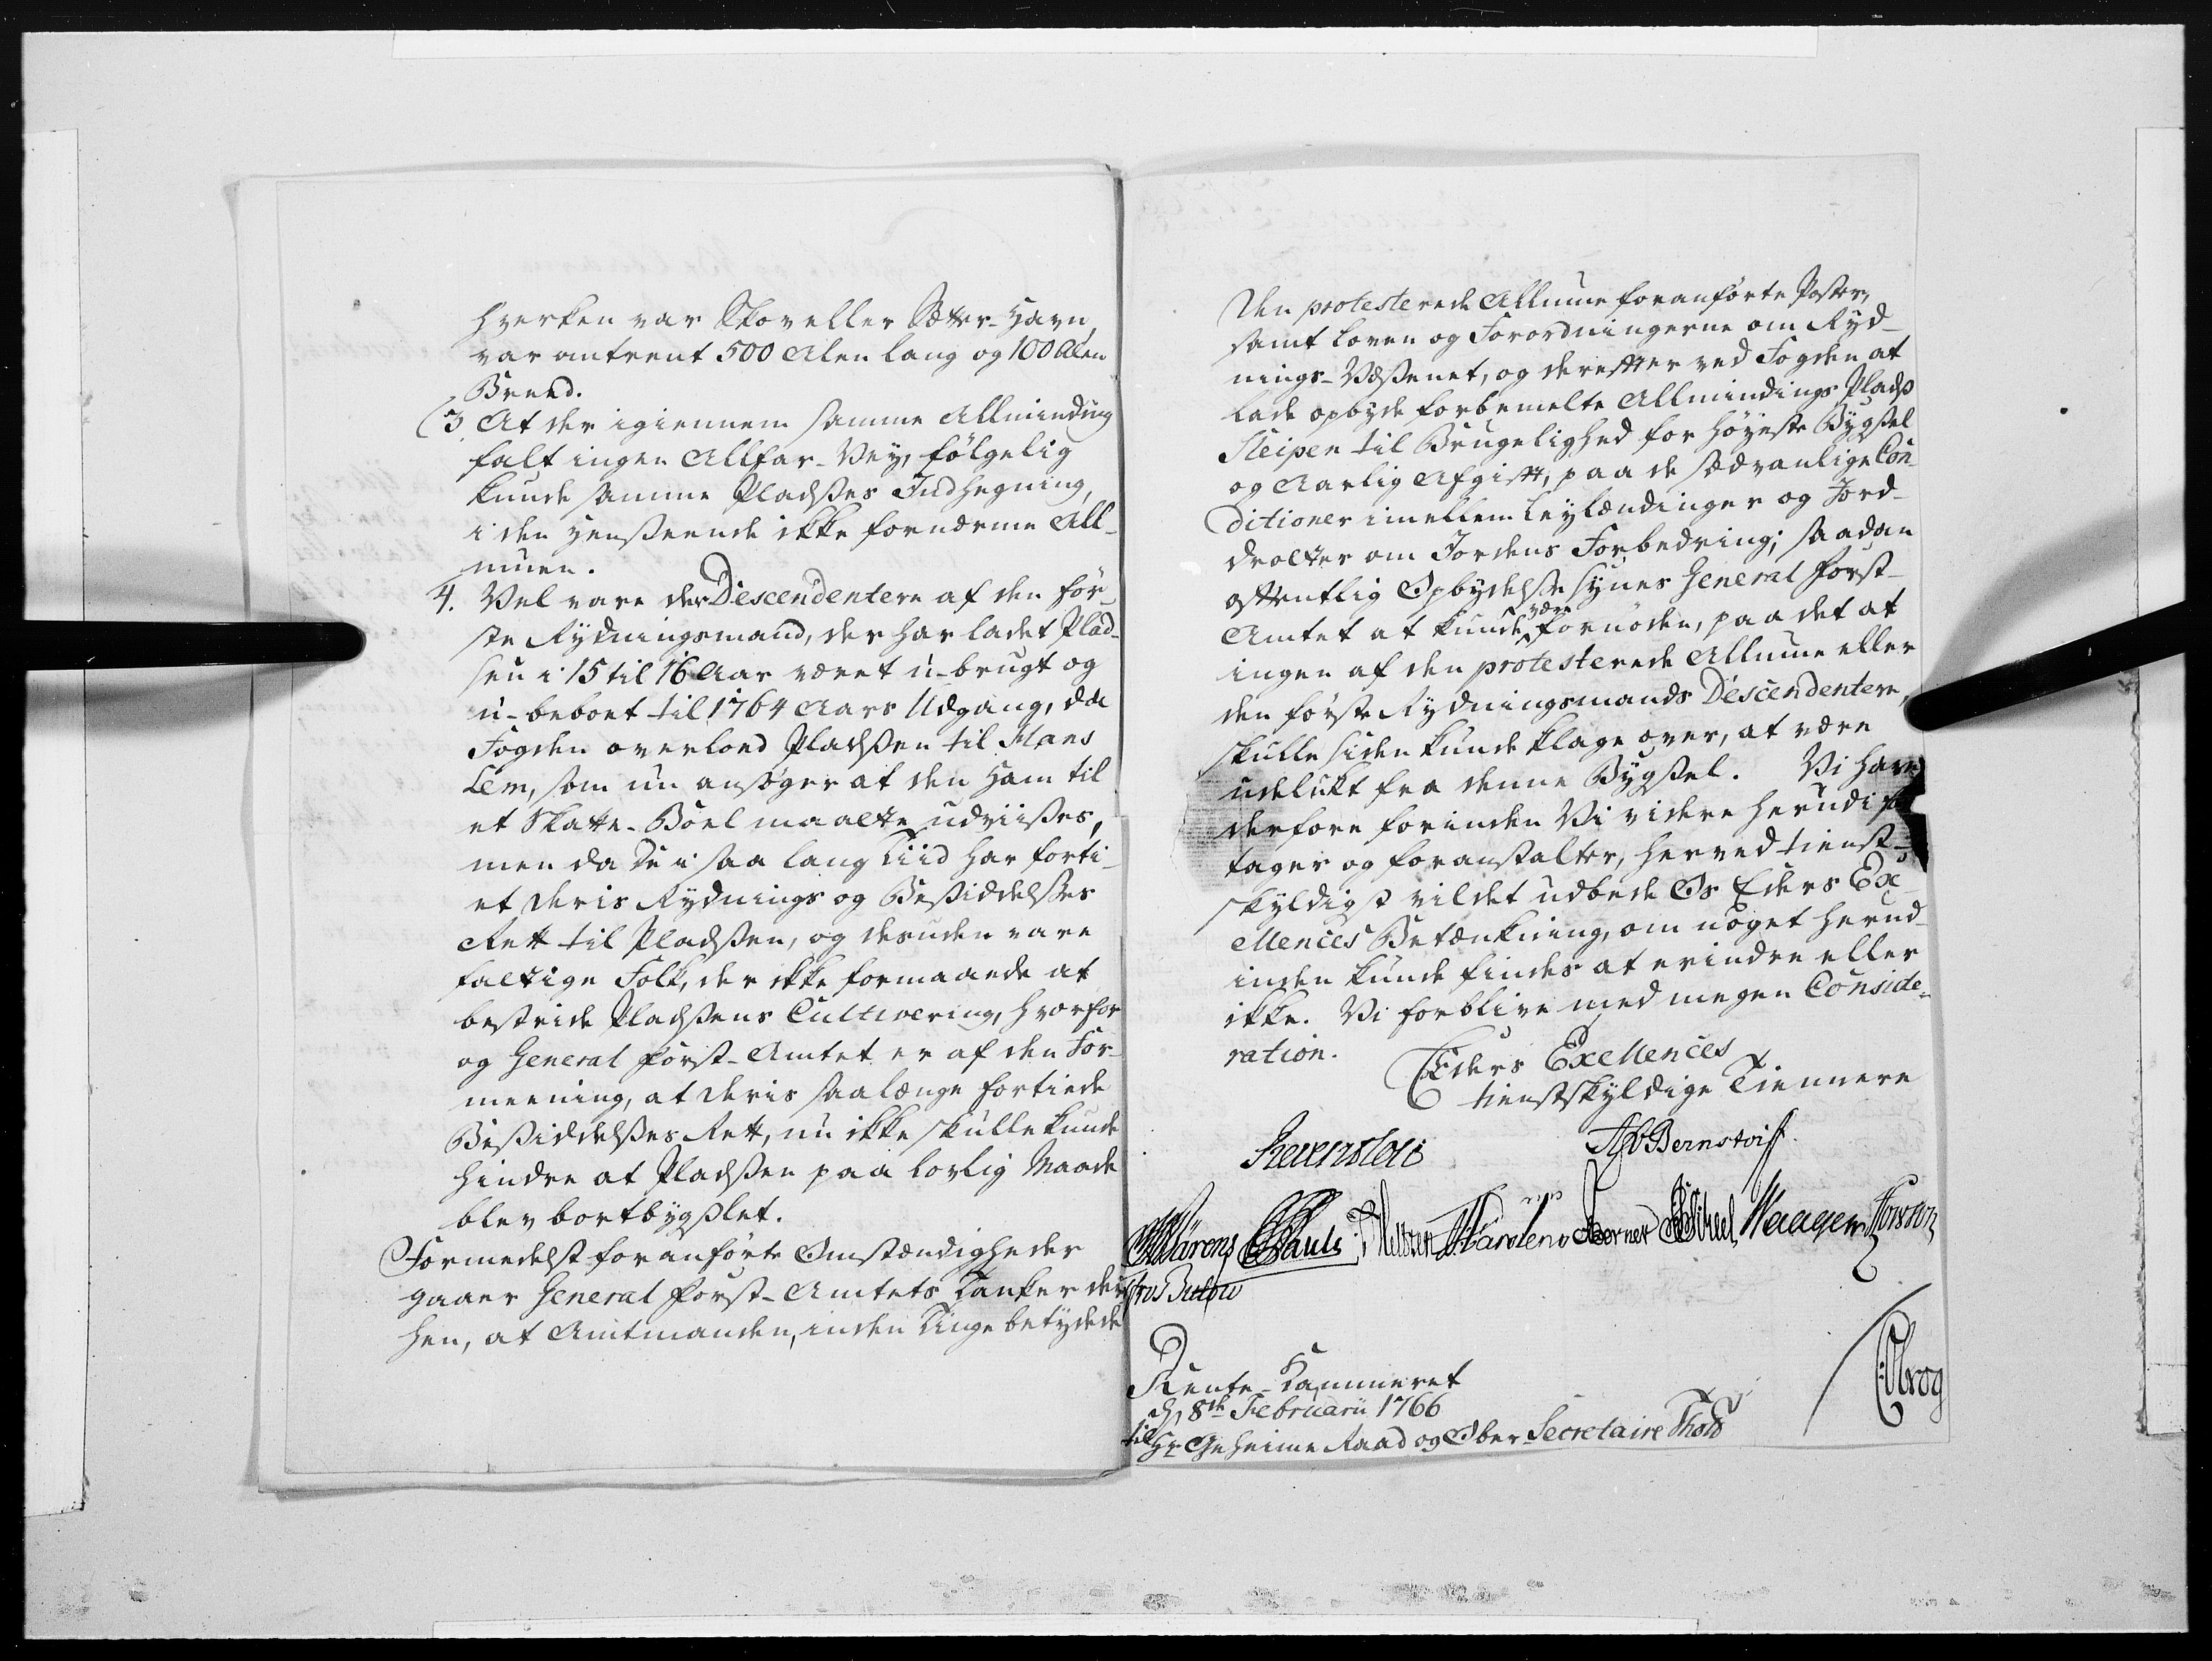 hverken var Skov eller Sæter-Havn,
var omtrent 500 Alen lang og 100 Alen
Breed.
3 At der igiennem samme Allminding
falt ingen Allfar-Vey, følgelig
kunde samme Pladses Indhegning,
i den henseende ikke fornærme All-
muen.
4. Vel vare der Descendentere af den før-
ste Rydningsmand, der har ladet Plad-
sen i 15 til 16 Aar været u-brugt og
u-beboet til 1764 Aars Udgang, da
Fogden overlod Pladsen til Hans
Lem, som nu ansøger at den ham til
et Skatte-Böel maatte udviises,
men da De i saa lang Tiid har forti-
et deris Rydnings og Besiddelses
Rett til Pladsen, og desuden vare
fattige Folk, der ikke formaaede at
bestride Pladsens Cultivering, hvorfor
og General Forst-Amtet er af den For-
meening, at deris saalænge fortiede
Besiddelses Rett, nu ikke skulle kunde
hindre at Pladsen paa lovlig Maade
blev bortbygslet.
Formedelst foranførte Omstændigheder
gaaer General Forst-Amtets Tanker der
hen, at Amtmanden, inden Tinge betydede
den protesterede Allmue foranførte Poster,
samt Loven og Forordningerne om Ryd-
nings-Væsenet, og derefter ved Fogden at
lade opbyde forbemelte Allmindings Plads
Sleipen til Brugelighed for høyeste Bygsel
og Aarlig Afgift, paa de sædvanlige Con-
ditioner imellem Leylændinger og Jord-
drotter om Jordens Forbedring; saadan
offentlig Opbydelse synes General Forst-
Amtet at kunde være fornøden, paa det at
ingen af den protesterede Allmue eller
den første Rydningsmands Descendentere,
skulle siden kunde klage over, at være
udelukt fra denne Bygsel. Vi have
derfore forinden Vi videre herudi for
tager og foranstalter, herved tienst-
skyldigst vildet udbede Os Eders Ex-
ellences Betænkning, om noget herud-
inden kunde findes at erindre eller
ikke. Vi forblive med megen Conside-
ration.
Eders Exellences
tienstskyldige Tiennere
Reventlow
AvBernstorff
Pauli
Rente-Kammeret
d. 8de Februarii 1766
til Hr Geheime Raad og Ober-Secretaire Thott